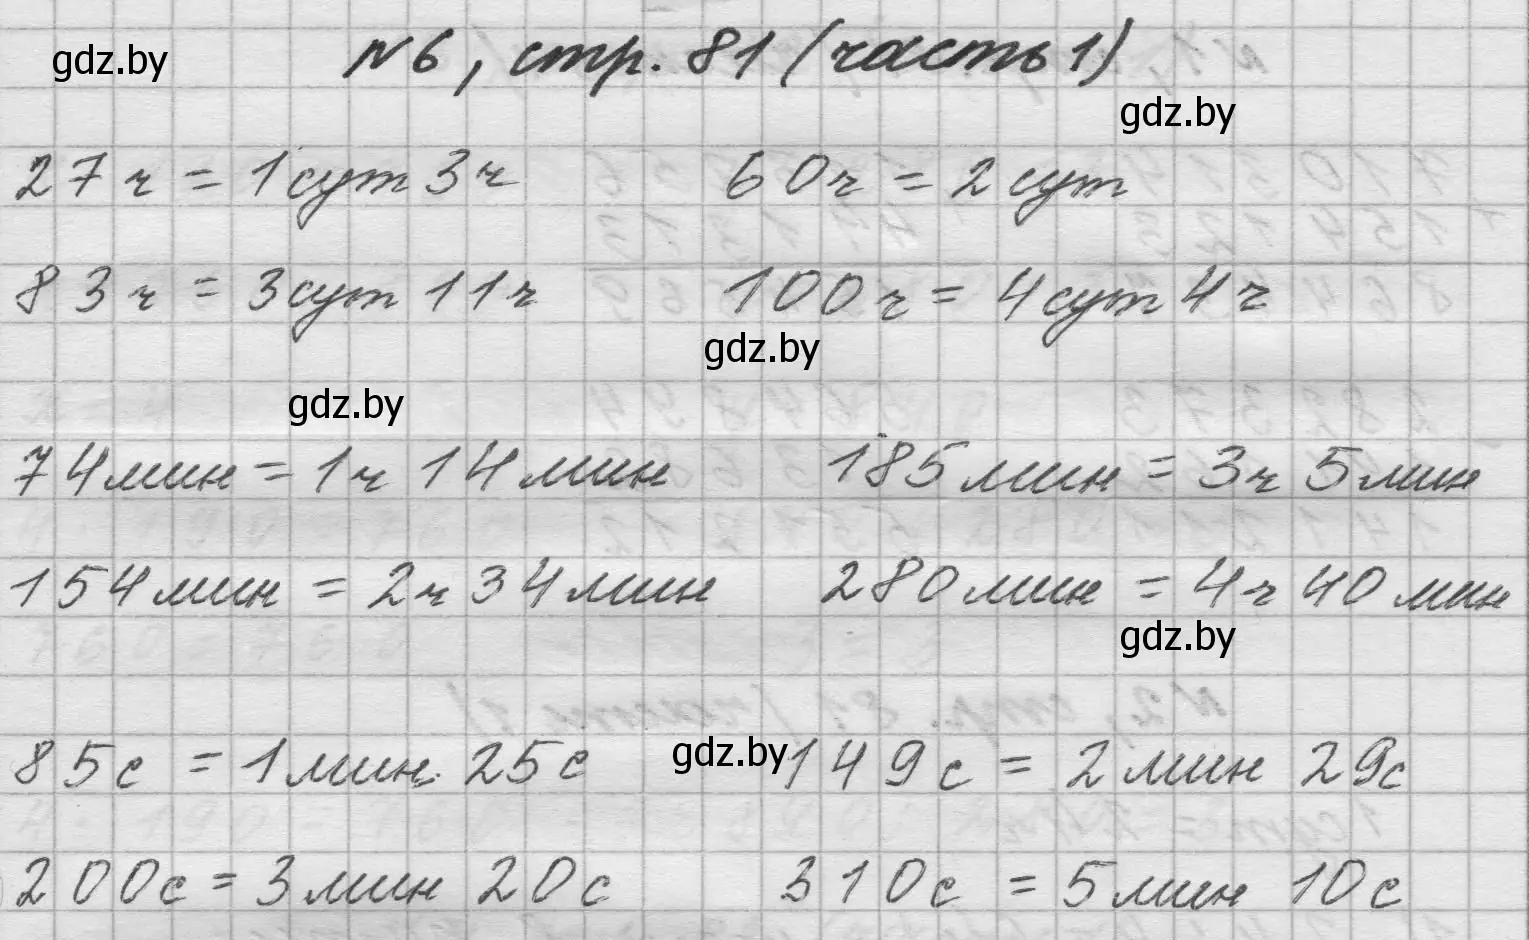 gdz.by
№6, стр. 81 (часть 1)
gdz.by
27ч = 1сут 3ч 60ч = 2сут
83ч = 3сут 11ч 100ч = 4сут 4ч
gdz.by
gdz.by
74мин = 1ч 14мин 185мин = 3ч 5мин
154мин = 2ч 34мин 280мин = 4ч 40мин
gdz.by
85с = 1мин 25с 149с = 2мин 29с
gdz.by
200с = 3мин 20с 310с = 5мин 10с